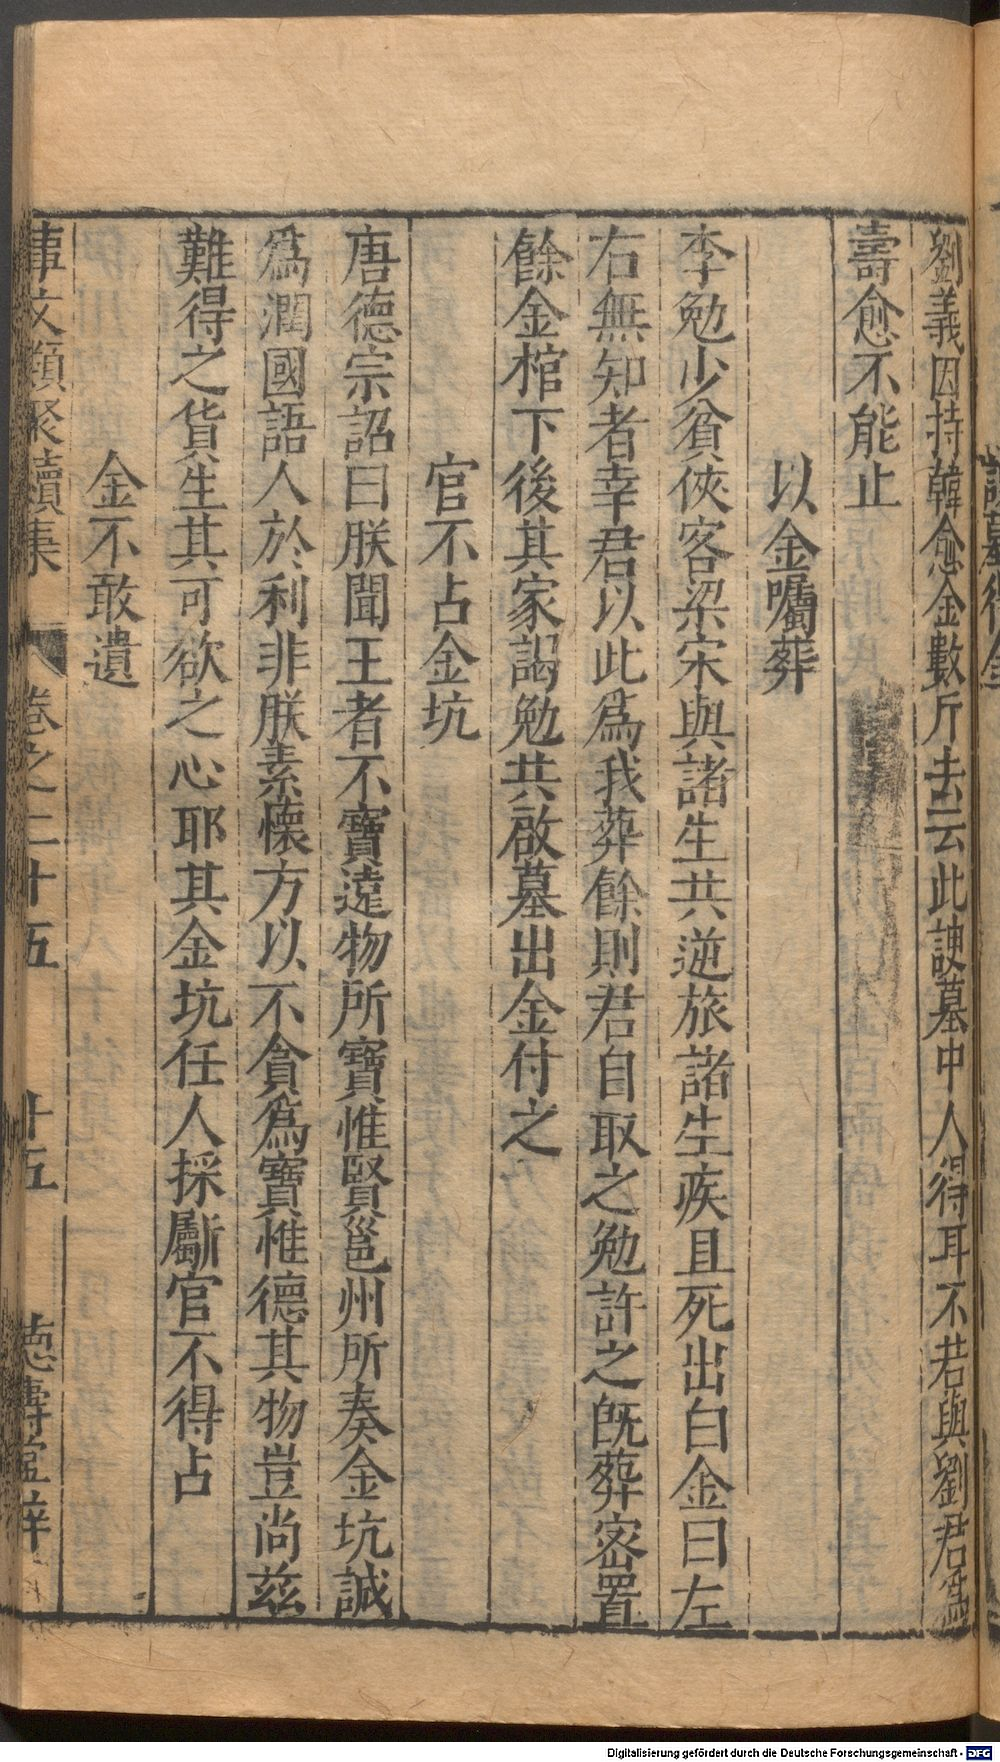 劉義因持韓愈金數斤去云此諛墓中人得耳不若與劉君爲
壽愈不能止
以金囑葬
李勉少貧俠客梁宋與諸生共逆旅諸生疾且死出白金曰左
右無知者幸君以此爲我葬餘則君自取之勉許之旣葬密置
餘金棺下後其家謁勉共啟墓出金付之
官不占金坑
唐德宗詔曰朕聞王者不寶遠物所寶惟賢邕州所奏金坑誠
爲潤國語人於利非朕素懷方以不貪爲寶惟德其物豈尚茲
難得之貨生其可欲之心耶其金坑任人採斸官不得占
金不敢遺
事文類聚續集 卷之二十五 十五 德壽堂梓
Digitalisierung gefördert durch die Deutsche Forschungsgemeinschaft - DFG